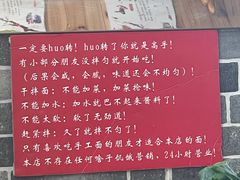 一定要huo转！huo转了你就是高手！
有小部分朋友没拌匀就开始吃！
(后果会咸，会腻，味道还会不均匀)！
干拌面：不能加菜，加菜抢味！
不能加水：加水就巴不起来酱料了！
不能太软：软了无劲道！
赶紧拌：久了就拌不匀了！
只有喜欢吃手工面的朋友才适合本店的面！
本店不存在任何啥子饥饿营销，24小时营业！